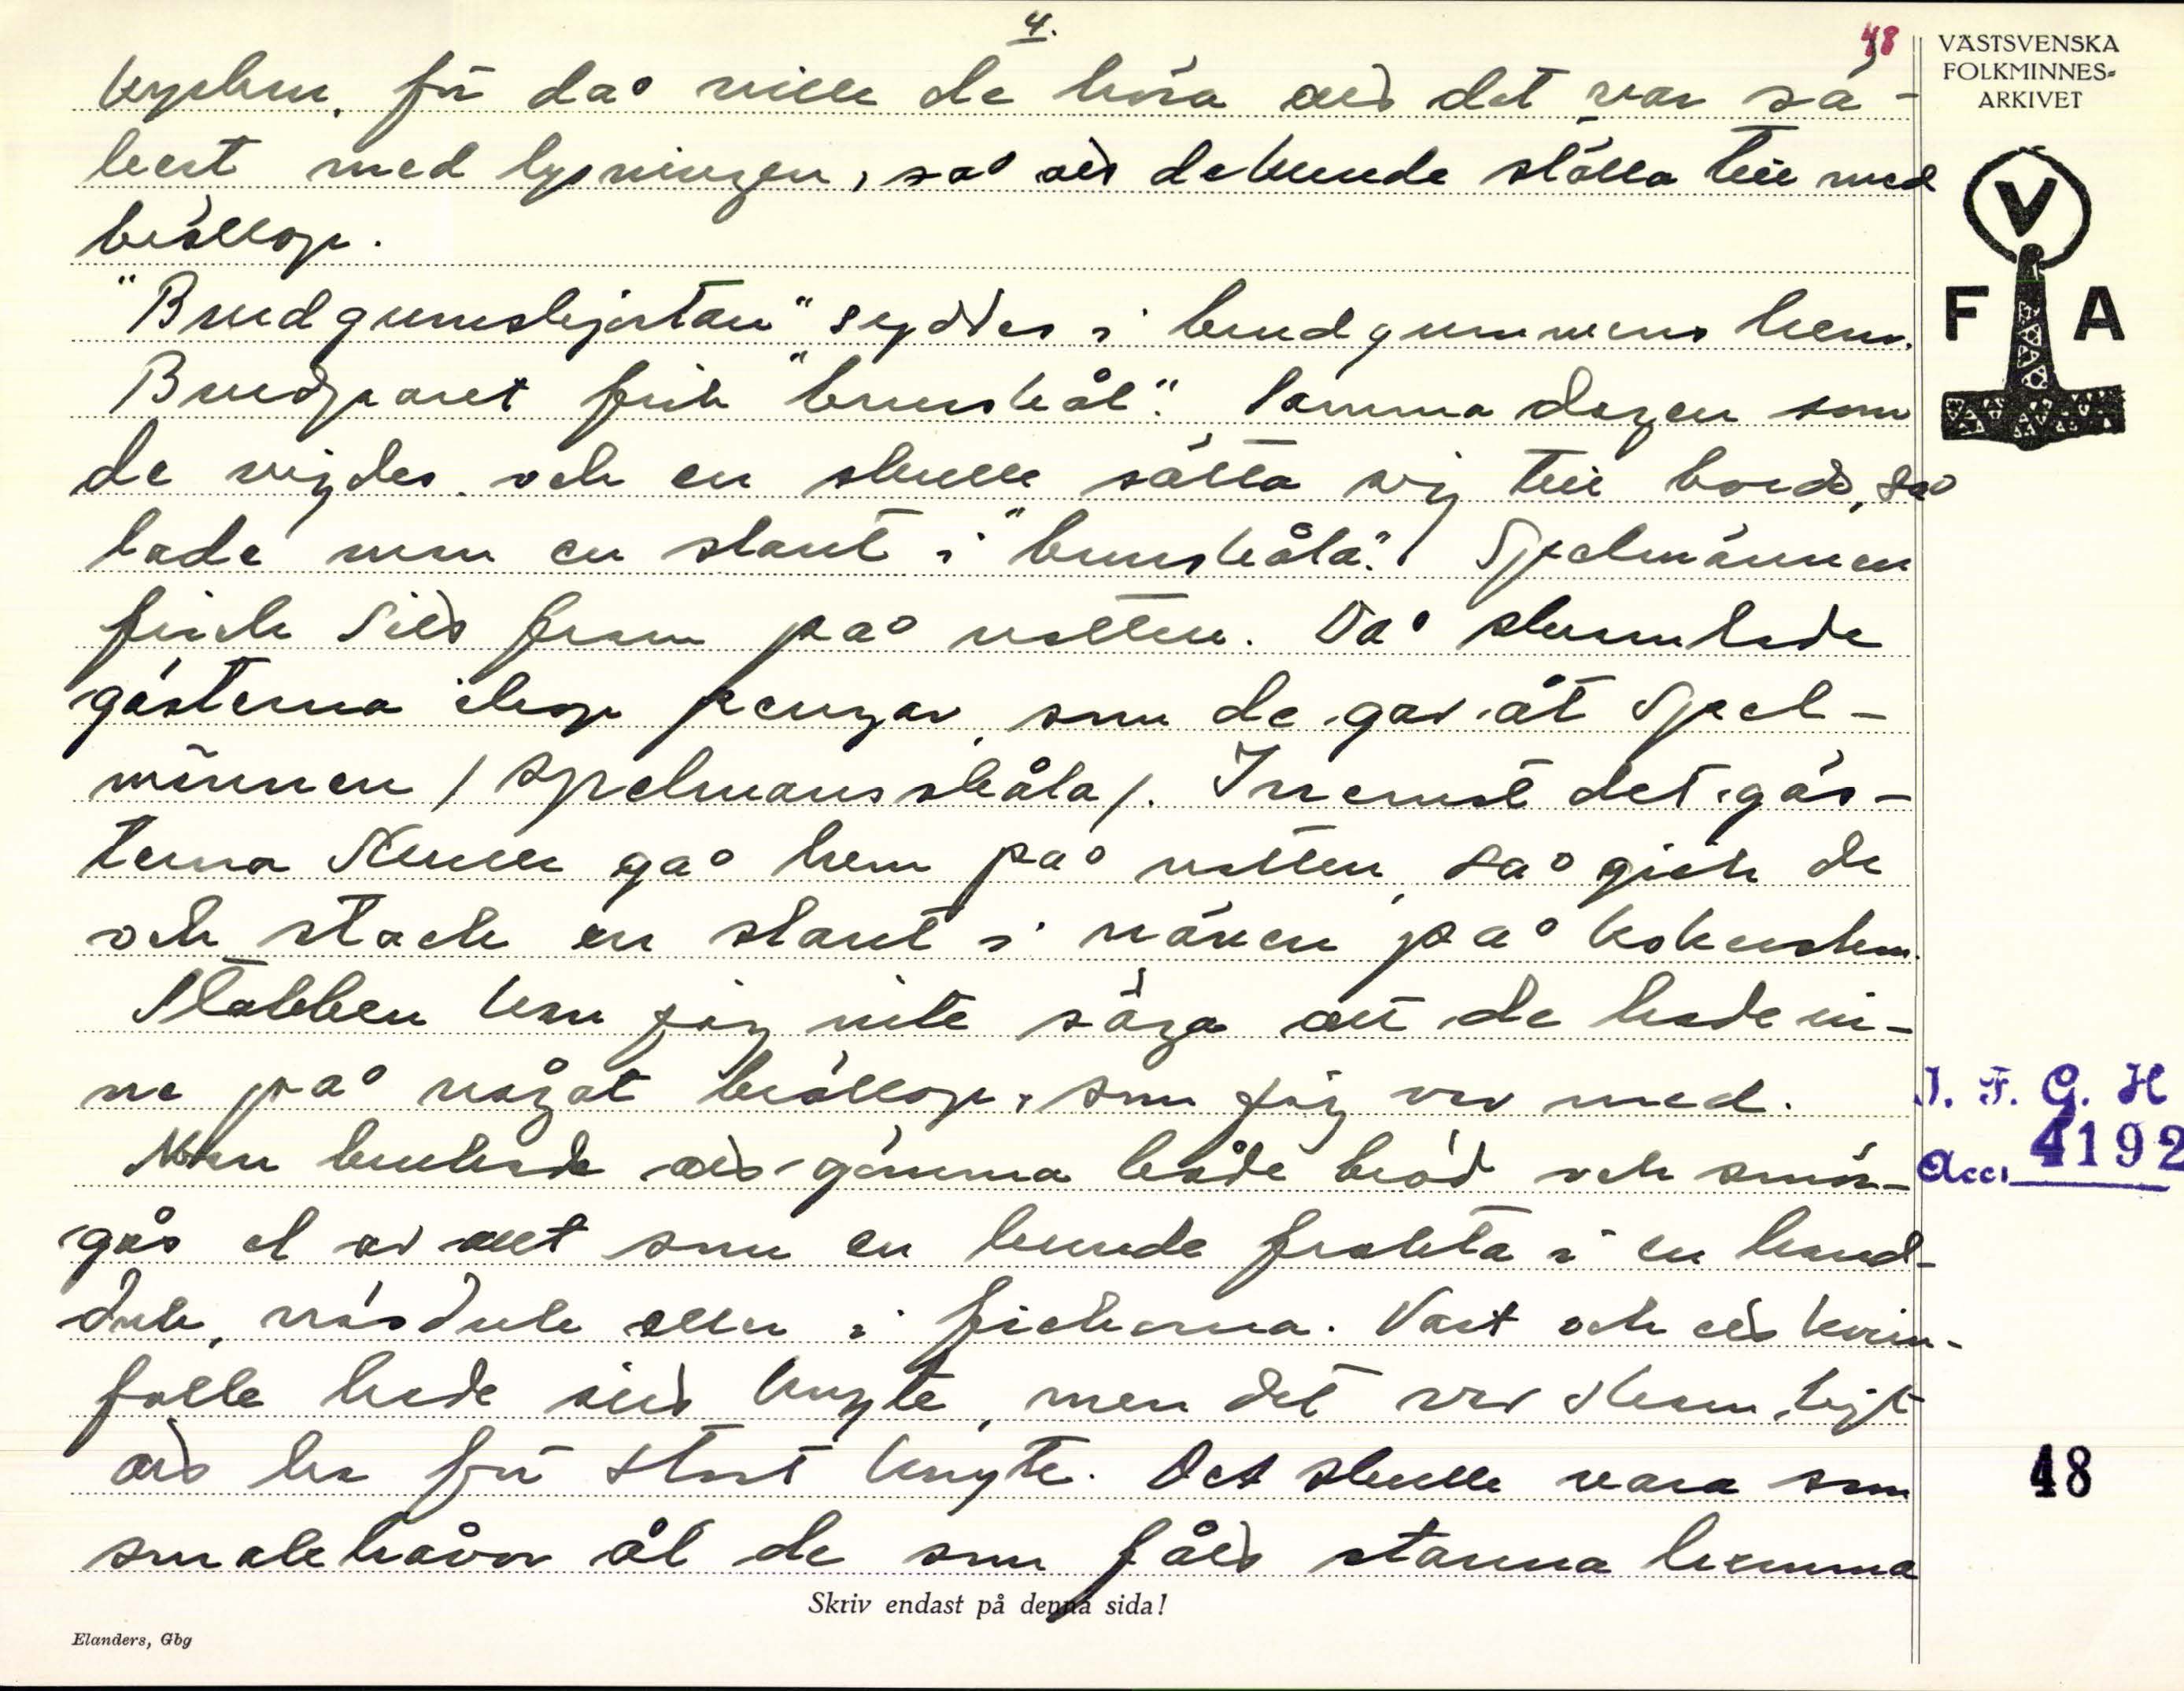 4.
48
VÄSTSVENSKA
FOLKMINNES-
ARKIVET
V
F A
kyrkan, för då ville de höra att det var sä-
kert med lysningen, så att de kunde ställa till med
bröllop.
"Brudgumskjortan" syddes i brudgummens hem.
Brudparet fick "brurskål". Samma dagen som
de vigdes och en skulle sätta sig till bords, så
lade man en slant i "brurskåla". Spelmännen
fingo sitt fram på natten. Då skramlade
gästerna ihop pengar som de gav åt spel-
männen / spelmansskåla /. Innemot det gäs-
terna skulle gå hem på natten, så gick de
och stack en slant i näven på kokerskan.
Stabben kan jag inte säga att de hade in-
ne på något bröllop, som jag var med.
Man brukade att gömma både bröd och smör-
gås el av allt som en kunde frakta i en hand-
duk, näsduk eller i fickorna. Vart och ett kvin-
folk hade sitt knyte, men det var skamligt
att ha för stort knyte. Det skulle vara som
smakehåvor åt de som fått stanna hemma
I. F. G. H
Acc. 4192
48
Skriv endast på denna sida!
Elanders, Gbg